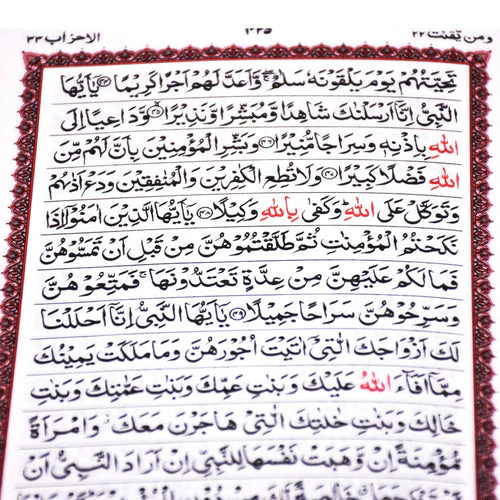 ومن یقنت ٢٢
الاحزاب ٣٣
تَحِيَّتُهُمْ يَوْمَ يَلْقَوْنَهٗ سَلٰمٌ ۖ وَّاَعَدَّ لَهُمْ اَجْرًا كَرِيْمًا يٰۤاَيُّهَا
النَّبِىُّ اِنَّاۤ اَرْسَلْنٰكَ شَاهِدًا وَّمُبَشِّرًا وَّنَذِيْرًا وَّدَاعِيًا اِلَى
اللّٰهِ بِاِذْنِهٖ وَسِرَاجًا مُّنِيْرًا وَبَشِّرِ الْمُؤْمِنِيْنَ بِاَنَّ لَهُمْ مِّنَ
اللّٰهِ فَضْلًا كَبِيْرًا وَلَا تُطِعِ الْكٰفِرِيْنَ وَالْمُنٰفِقِيْنَ وَدَعْ اَذٰىهُمْ
وَتَوَكَّلْ عَلَى اللّٰهِ ؕ وَكَفٰى بِاللّٰهِ وَكِيْلًا يٰۤاَيُّهَا الَّذِيْنَ اٰمَنُوْۤا اِذَا
نَكَحْتُمُ الْمُؤْمِنٰتِ ثُمَّ طَلَّقْتُمُوْهُنَّ مِنْ قَبْلِ اَنْ تَمَسُّوْهُنَّ
فَمَا لَكُمْ عَلَيْهِنَّ مِنْ عِدَّةٍ تَعْتَدُّوْنَهَا ۚ فَمَتِّعُوْهُنَّ
وَسَرِّحُوْهُنَّ سَرَاحًا جَمِيْلًا يٰۤاَيُّهَا النَّبِىُّ اِنَّاۤ اَحْلَلْنَا
لَكَ اَزْوَاجَكَ الّٰتِىْۤ اٰتَيْتَ اُجُوْرَهُنَّ وَمَا مَلَكَتْ يَمِيْنُكَ
مِمَّاۤ اَفَآءَ اللّٰهُ عَلَيْكَ وَبَنٰتِ عَمِّكَ وَبَنٰتِ عَمّٰتِكَ وَبَنٰتِ
خَالِكَ وَبَنٰتِ خٰلٰتِكَ الّٰتِىْ هَاجَرْنَ مَعَكَ ؗ وَامْرَاَةً
مُّؤْمِنَةً اِنْ وَّهَبَتْ نَفْسَهَا لِلنَّبِىِّ اِنْ اَرَادَ النَّبِىُّ اَنْ